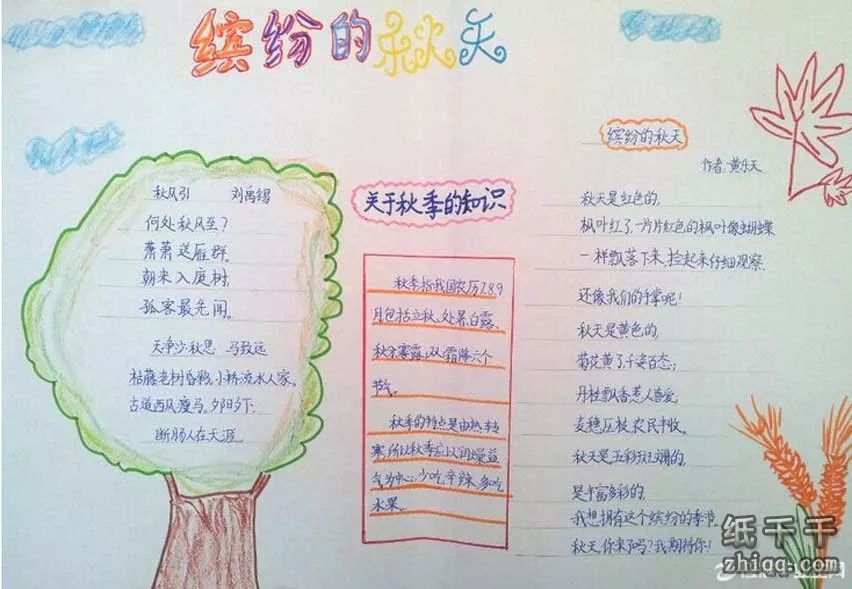 缤纷的秋天
秋风引 刘禹锡
何处秋风至？
萧萧送雁群。
朝来入庭树，
孤客最先闻。
天净沙秋思 马致远
枯藤老树昏鸦，小桥流水人家。
古道西风瘦马。夕阳夕下，
断肠人在天涯。
关于秋季的知识
秋季指我国农历7.8.9
月包括立秋、处暑、白露、
秋分、寒露、霜降六个
节气。
秋季的特点是由热转
寒，所以秋季应以润燥益
气为中心，少吃辛辣，多吃
水果。
缤纷的秋天
作者：黄乐天
秋天是红色的，
枫叶红了，一片片红色的枫叶像蝴蝶
一样飘落下来，捡起来仔细观察，
还像我们的手掌呢！
秋天是黄色的，
菊花黄了，千姿百态；
丹桂飘香，惹人喜爱；
麦穗压枝，农民丰收。
秋天是五彩斑斓的，
是丰富多彩的，
我想拥有这个缤纷的季节，
秋天，你来了吗？我期待你！
纸千千
zhiqq.com